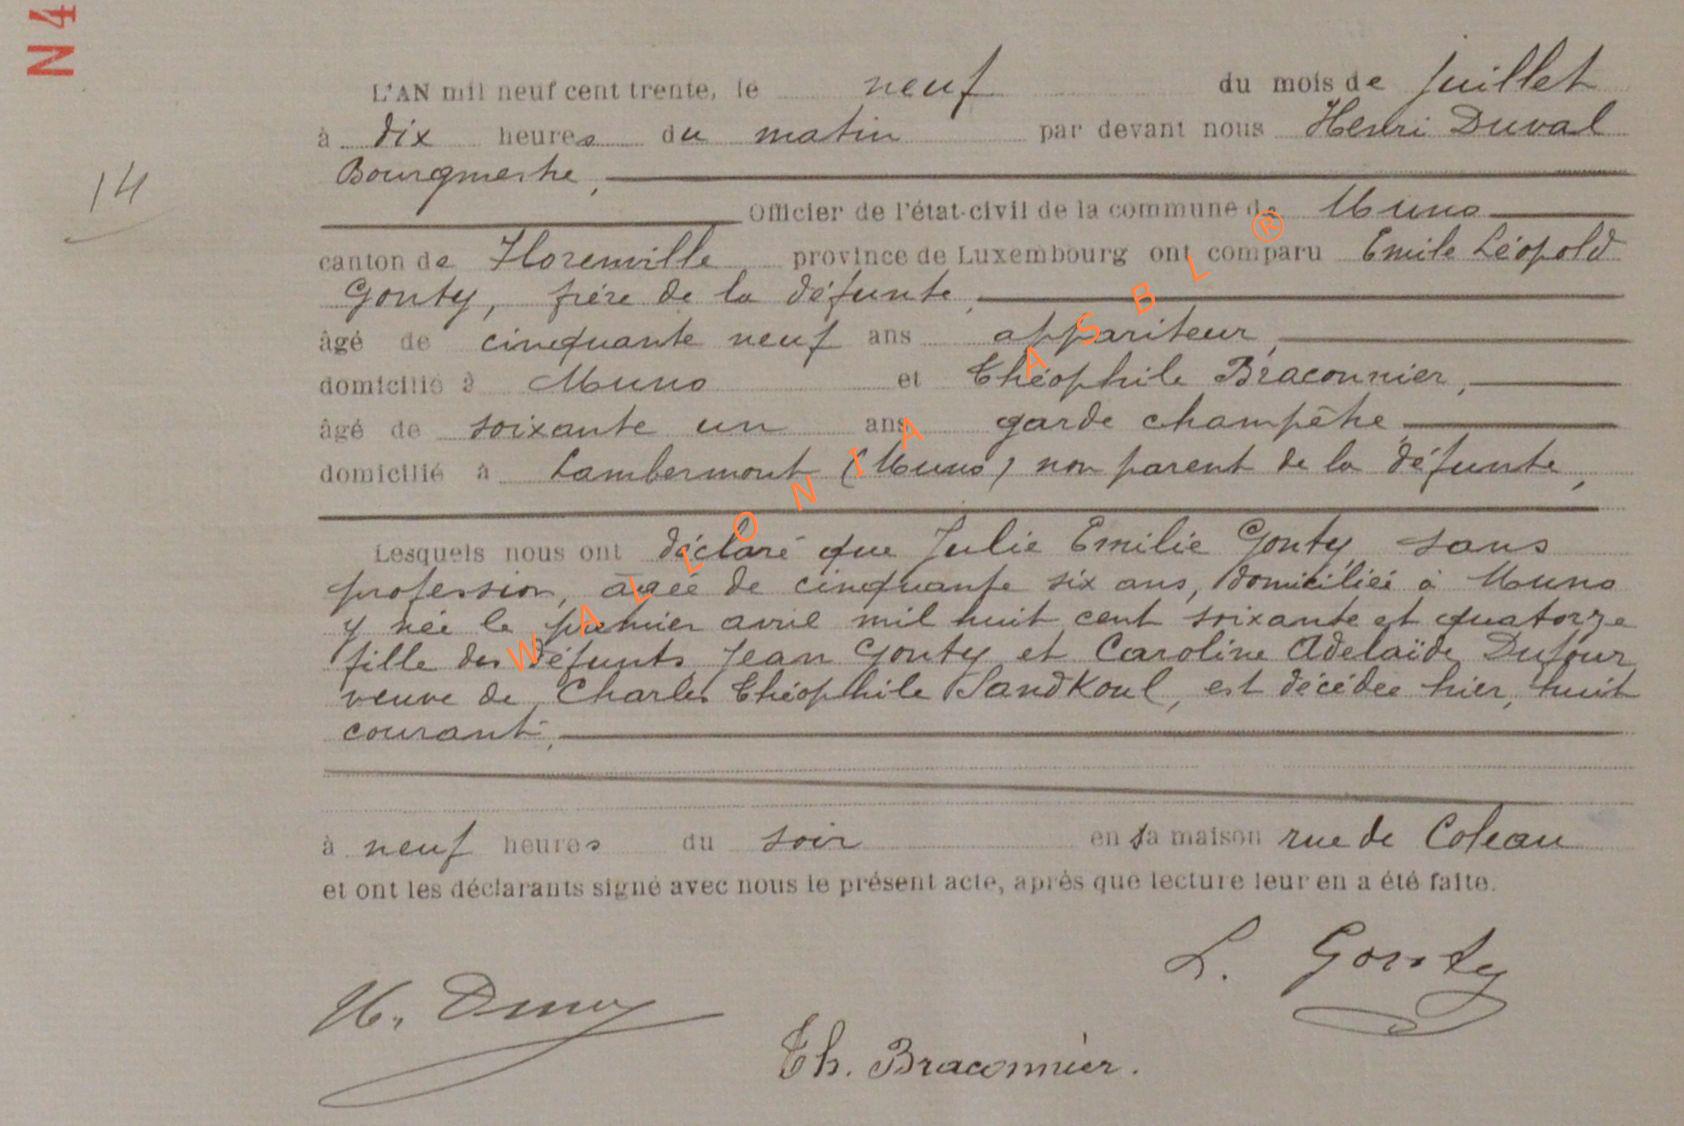 N 4
L'AN mil neuf cent trente, le neuf du mois de Juillet
à dix heures du matin par devant nous Henri Duval
14
Bourgmestre,
Officier de l'état-civil de la commune de Muno
canton de Florenville province de Luxembourg ont comparu Emile Léopold
Gouty, frère de la défunte,
âgé de cinquante neuf ans appariteur,
domicilié à Muno et Théophile Braconnier,
âgé de soixante un ans garde champêtre
domicilié à Lambermont (Muno) non parent de la défunte,
Lesquels nous ont déclaré que Julie Emilie Gouty, sans
profession, âgée de cinquante six ans, domiciliée à Muno
y née le premier avril mil huit cent soixante et quatorze
fille des défunts Jean Gouty et Caroline Adelaïde Dufour,
veuve de Charles Théophile Sandkoul, est décédée hier, huit
courant,
à neuf heures du soir en sa maison rue de Coleau
et ont les déclarants signé avec nous le présent acte, après que lecture leur en a été faite.
L. Gouty
H. Duval
Th. Braconnier.
WALLONIA ASBL ®